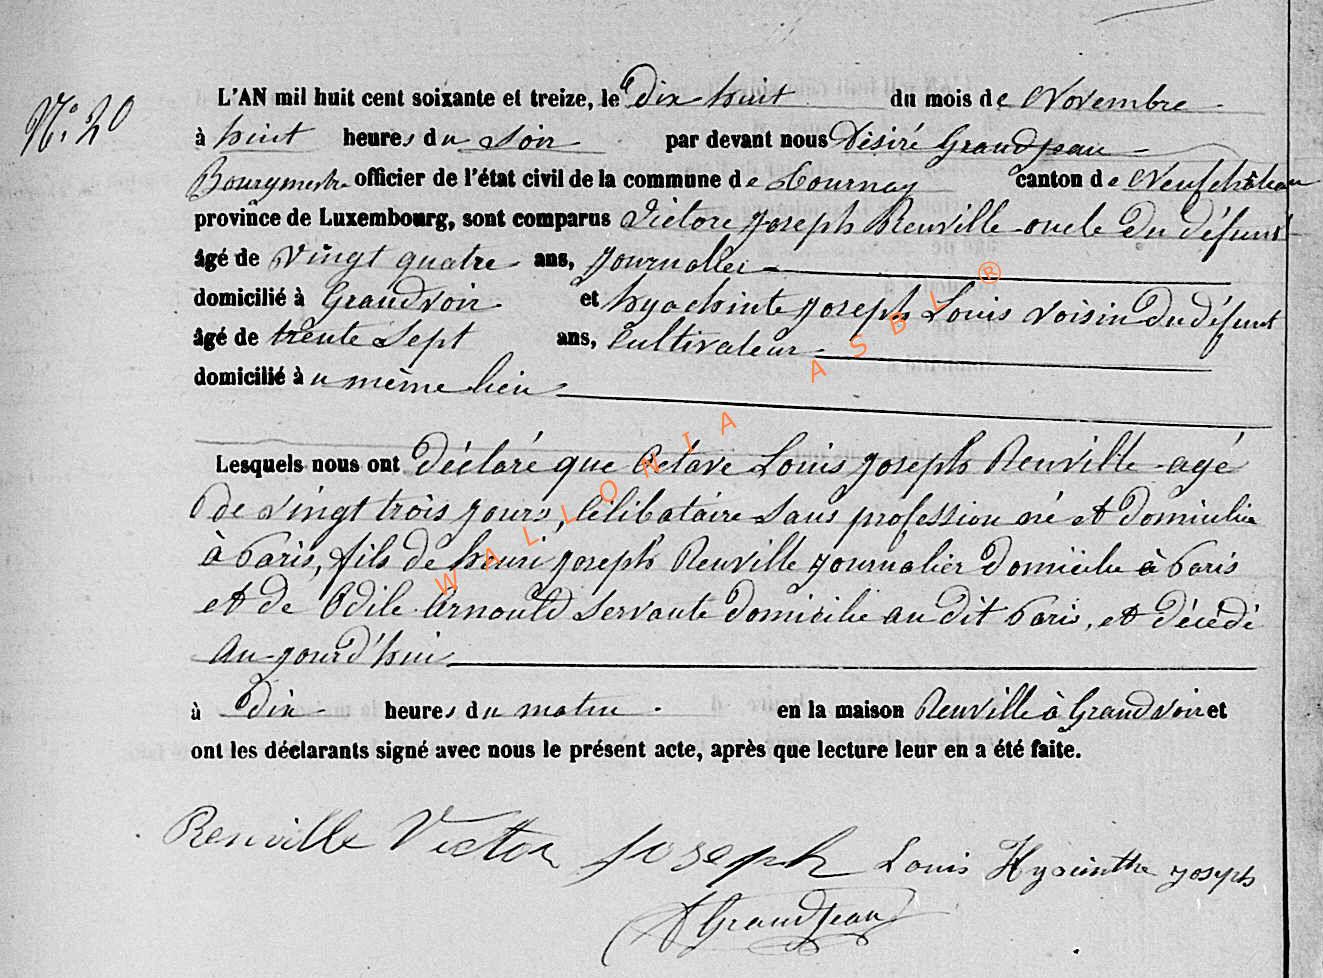 N° 20
L'AN mil huit cent soixante et treize, le dix huit du mois de Novembre
à huit heures du soir par devant nous Désiré Grandjean
Bourgmestre officier de l'état civil de la commune de Tournay canton de Neufchâteau
province de Luxembourg, sont comparus Victore Joseph Renville oncle du défunt
âgé de vingt quatre ans, journalier
domicilié à Grandvoir et hyachinte joseph Louis voisin du défunt
âgé de trente sept ans, Cultivateur
domicilié à u même lieu
Lesquels nous ont déclaré que Octave Louis joseph Renville agé
de vingt trois jours, Célibataire sans profession né et domicilié
à Paris, fils de henri joseph Renville journalier domicilié à Paris
et de Odile Arnould servante domicilié au dit Paris, et décédé
aujourd'hui
à dix heures du matin en la maison Renville à Grandvoir et
ont les déclarants signé avec nous le présent acte, après que lecture leur en a été faite.
Renville Victor Joseph Louis Hyacinthe joseph
Grandjean
WALLONIA ASBL ®